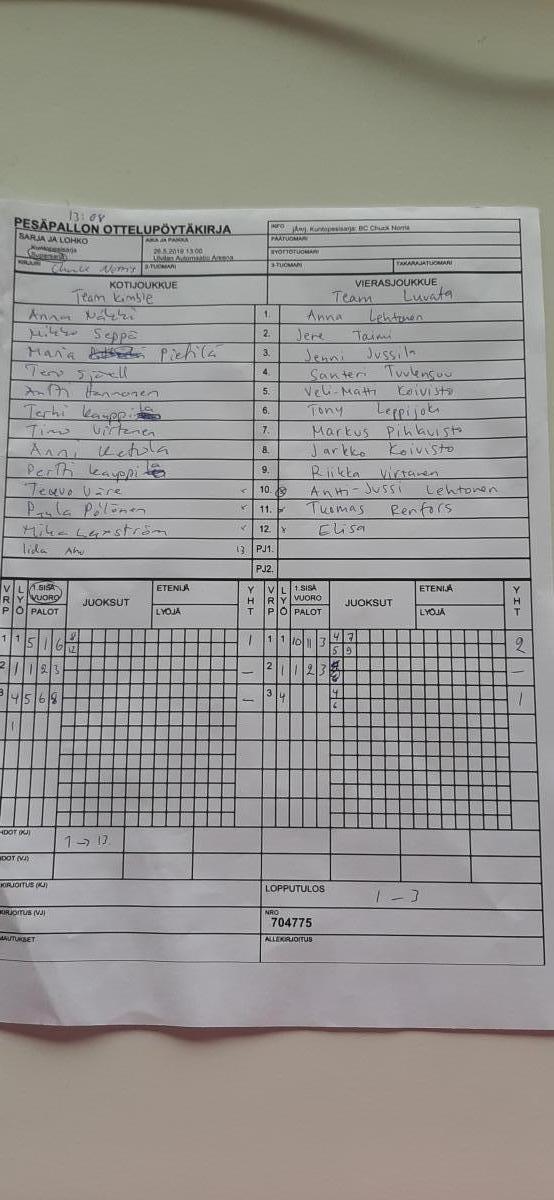 13:08
PESÄPALLON OTTELUPÖYTÄKIRJA
INFO jÄnj. Kuntopesisarja: BC Chuck Norris
SARJA JA LOHKO
Kuntopesisarja
AIKA JA PAIKKA
26.5.2019 13:00
Ulvilan Automaatio Areena
PÄÄTUOMARI
SYÖTTÖTUOMARI
KIRJURI Chuck Norris
2-TUOMARI
3-TUOMARI
TAKARAJATUOMARI
KOTIJOUKKUE
VIERASJOUKKUE
Team Kimble
Team Luvata
Anna Näkki 1. Anna Lehtonen
Mikko Seppä 2. Jere Taimi
Maria Pietilä 3. Jenni Jussila
Tero Sjövall 4. Santeri Tuulensuu
Antti Hannonen 5. Veli-Matti Koivisto
Terhi Kauppila 6. Tony Leppijoki
Timo Virtanen 7. Markus Pihlavisto
Anni Ketola 8. Jarkko Koivisto
Pertti Kauppila 9. Riikka Virtanen
Teuvo Väre x 10. x Antti-Jussi Lehtonen
Pölönen x 11. x Tuomas Renfors
Mika x 12. x Elisa
Iida Aho 13 PJ1.
PJ2.
VRP LYÖ 1.SISÄ VUORO PALOT JUOKSUT ETENIJÄ LYÖJÄ YHT VRP LYÖ 1.SISÄ VUORO PALOT JUOKSUT ETENIJÄ LYÖJÄ YHT
1 1 5 1 6 8 1 1 1 10 11 3 4 7 2
12 5 9
2 1 1 2 3 – 2 1 1 2 3 –
3 4 5 6 8 – 3 4 4 1
6
1
HDOT (KJ) 1 → 13
HDOT (VJ)
KIRJOITUS (KJ)
LOPPUTULOS 1 – 3
KIRJOITUS (VJ)
NRO
704775
MAUTUKSET
ALLEKIRJOITUS